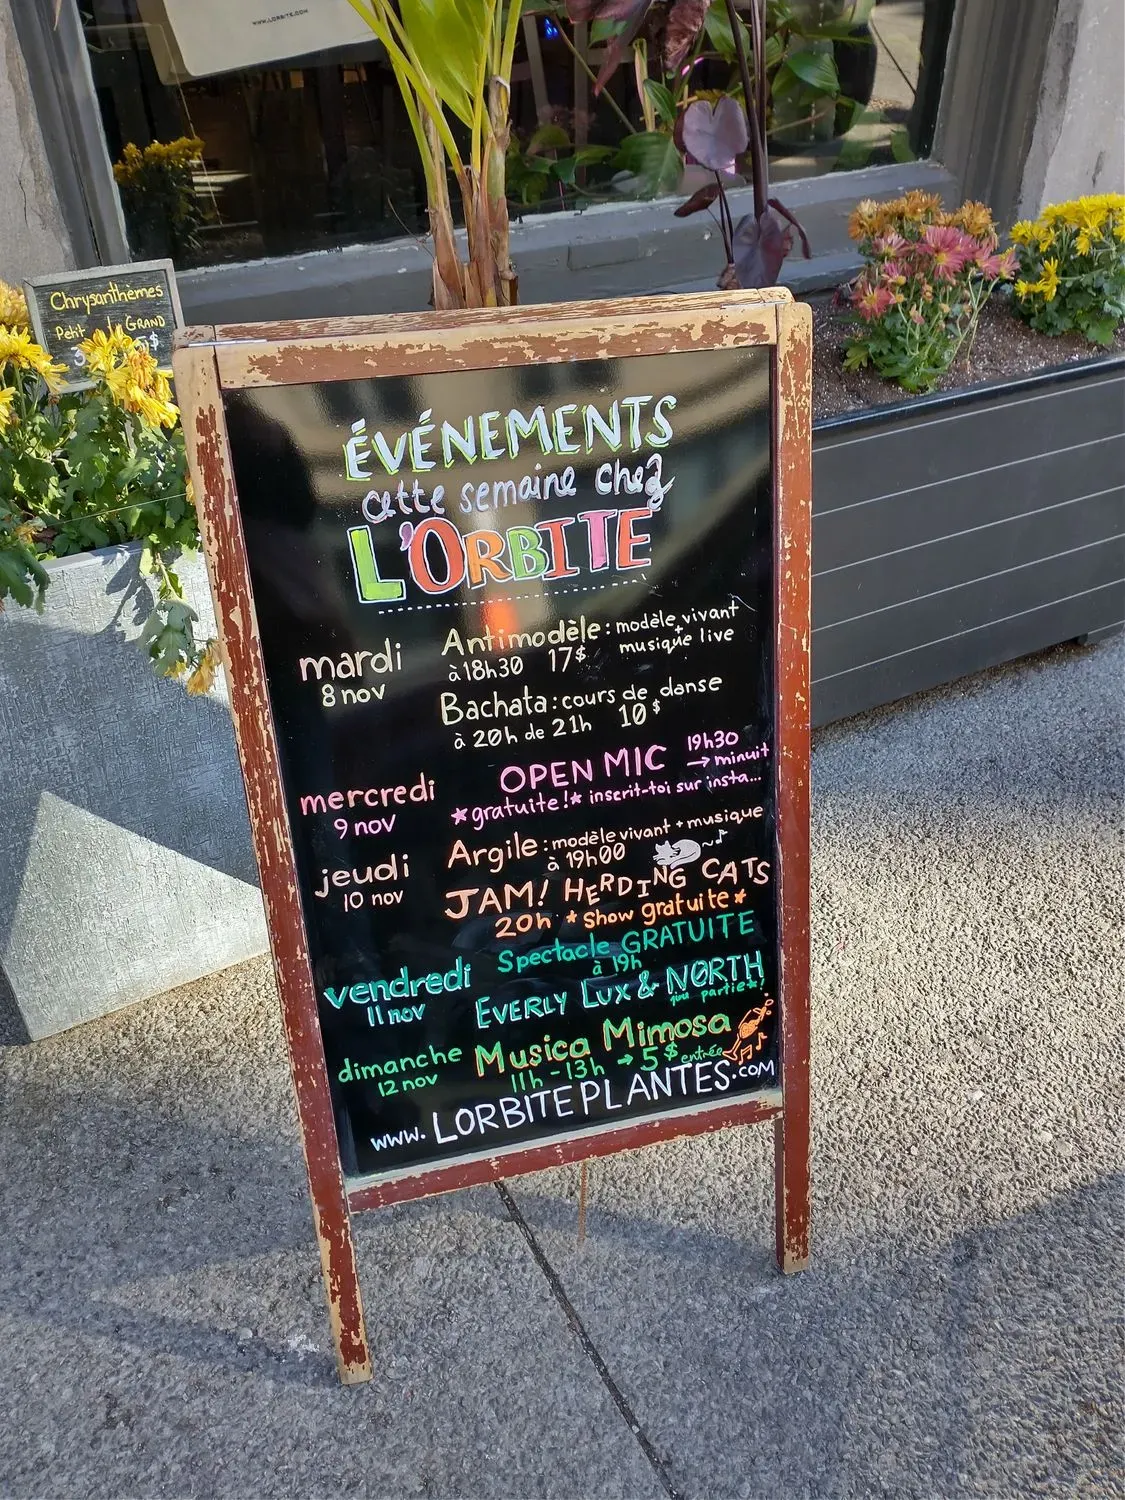 WWW.LORBITE.COM
Chrysanthèmes
Petit GRAND
$
ÉVÉNEMENTS
cette semaine chez
L'ORBITE
mardi
8 nov
Antimodèle : modèle vivant
+
musique live
à 18h30 17$
Bachata : cours de danse
à 20h de 21h 10$
mercredi
9 nov
OPEN MIC 19h30
→ minuit
*gratuite!* inscrit-toi sur insta...
jeudi
10 nov
Argile : modèle vivant + musique
à 19h00
JAM! HERDING CATS
20h * Show gratuite *
vendredi
11 nov
Spectacle GRATUITE
à 19h
EVERLY LUX & NØRTH
partie*!
dimanche
12 nov
Musica Mimosa
11h - 13h → 5$ entrée
www.LORBITEPLANTES.COM